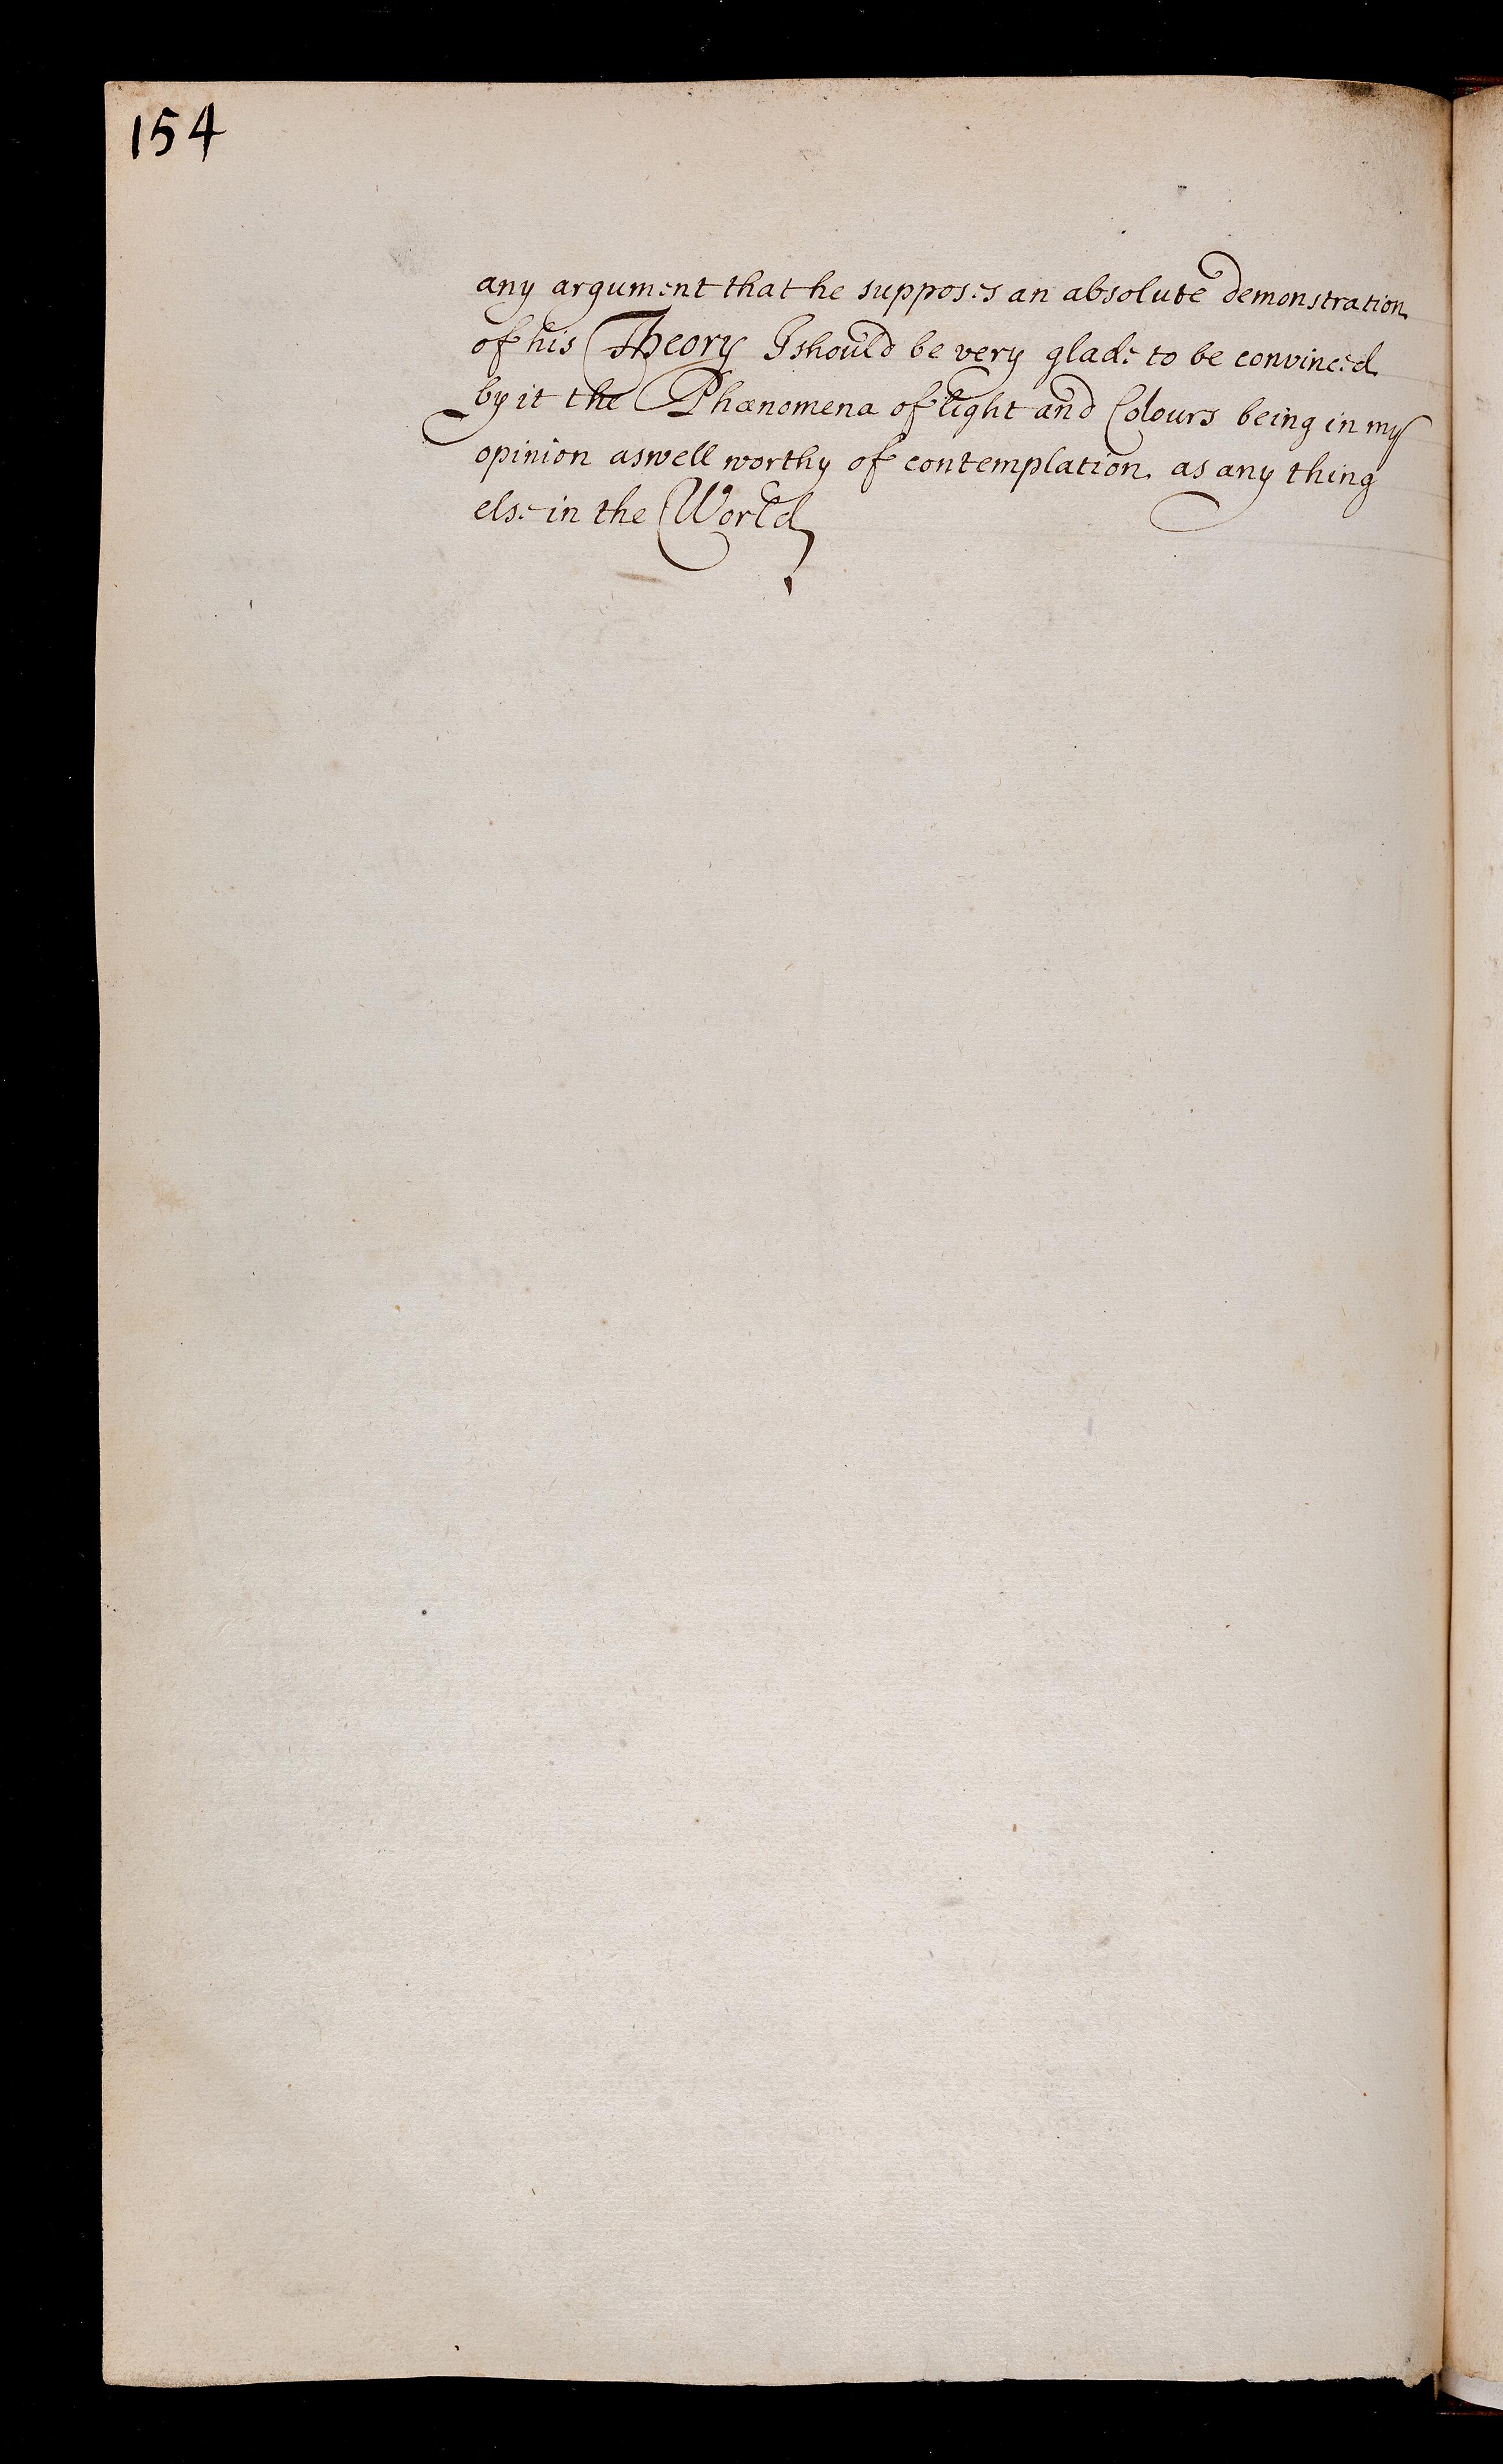 154
any argument that he supposes an absolute demonstration
of his Theory I should be very glade to be convinced
by it the Phænomena of light and Colours being in my
opinion aswell worthy of contemplation as any thing
else in the World